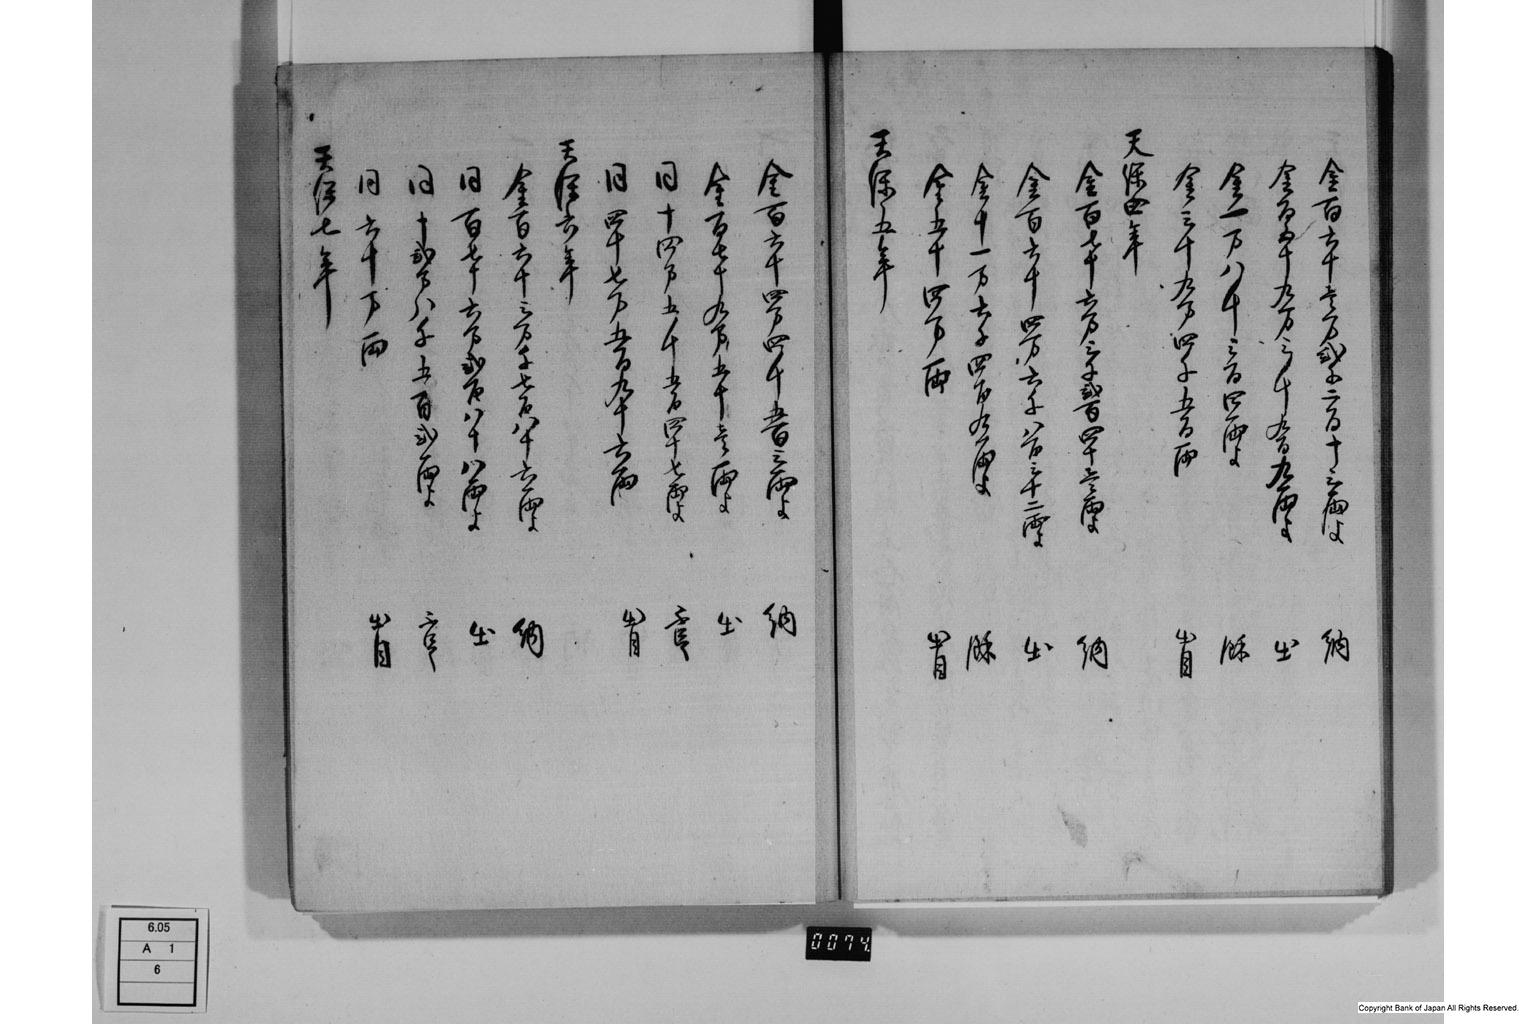 金百六十壱万弐千二百十三両余 納
金百五十九万三千五百九両余 出
金一万八千三百四両余 除
金三十九万四千五百両
天保四年
金百七十六万三千弐百四十壱両余 納
金百六十四万六千八百三十二両余 出
金十一万六千四百九両余 除
金五十四万両
天保五年
金百六十四万四千五百三両余 納
金百七十九万五十壱両余 出
同十四万五千五百四十七両余 不足
同四十七万五百九十六両
天保六年
金百六十三万千七百八十六両余 納
同百七十六万弐百八十八両余 出
同十弐万八千五百弐両余 不足
同六十万両
天保七年
6.05
A 1
6
0074
Copyright Bank of Japan All Rights Reserved.